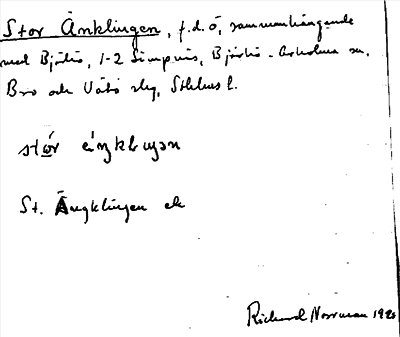 Stor Änklingen, f.d. ö, sammanhängande
med Björkö, 1-2 Simpnäs, Björkö-Arholma sn,
Bro och Vätö skg, Sthlms l.
stór
St. Ängklingen ek
Richard Norrman 1920